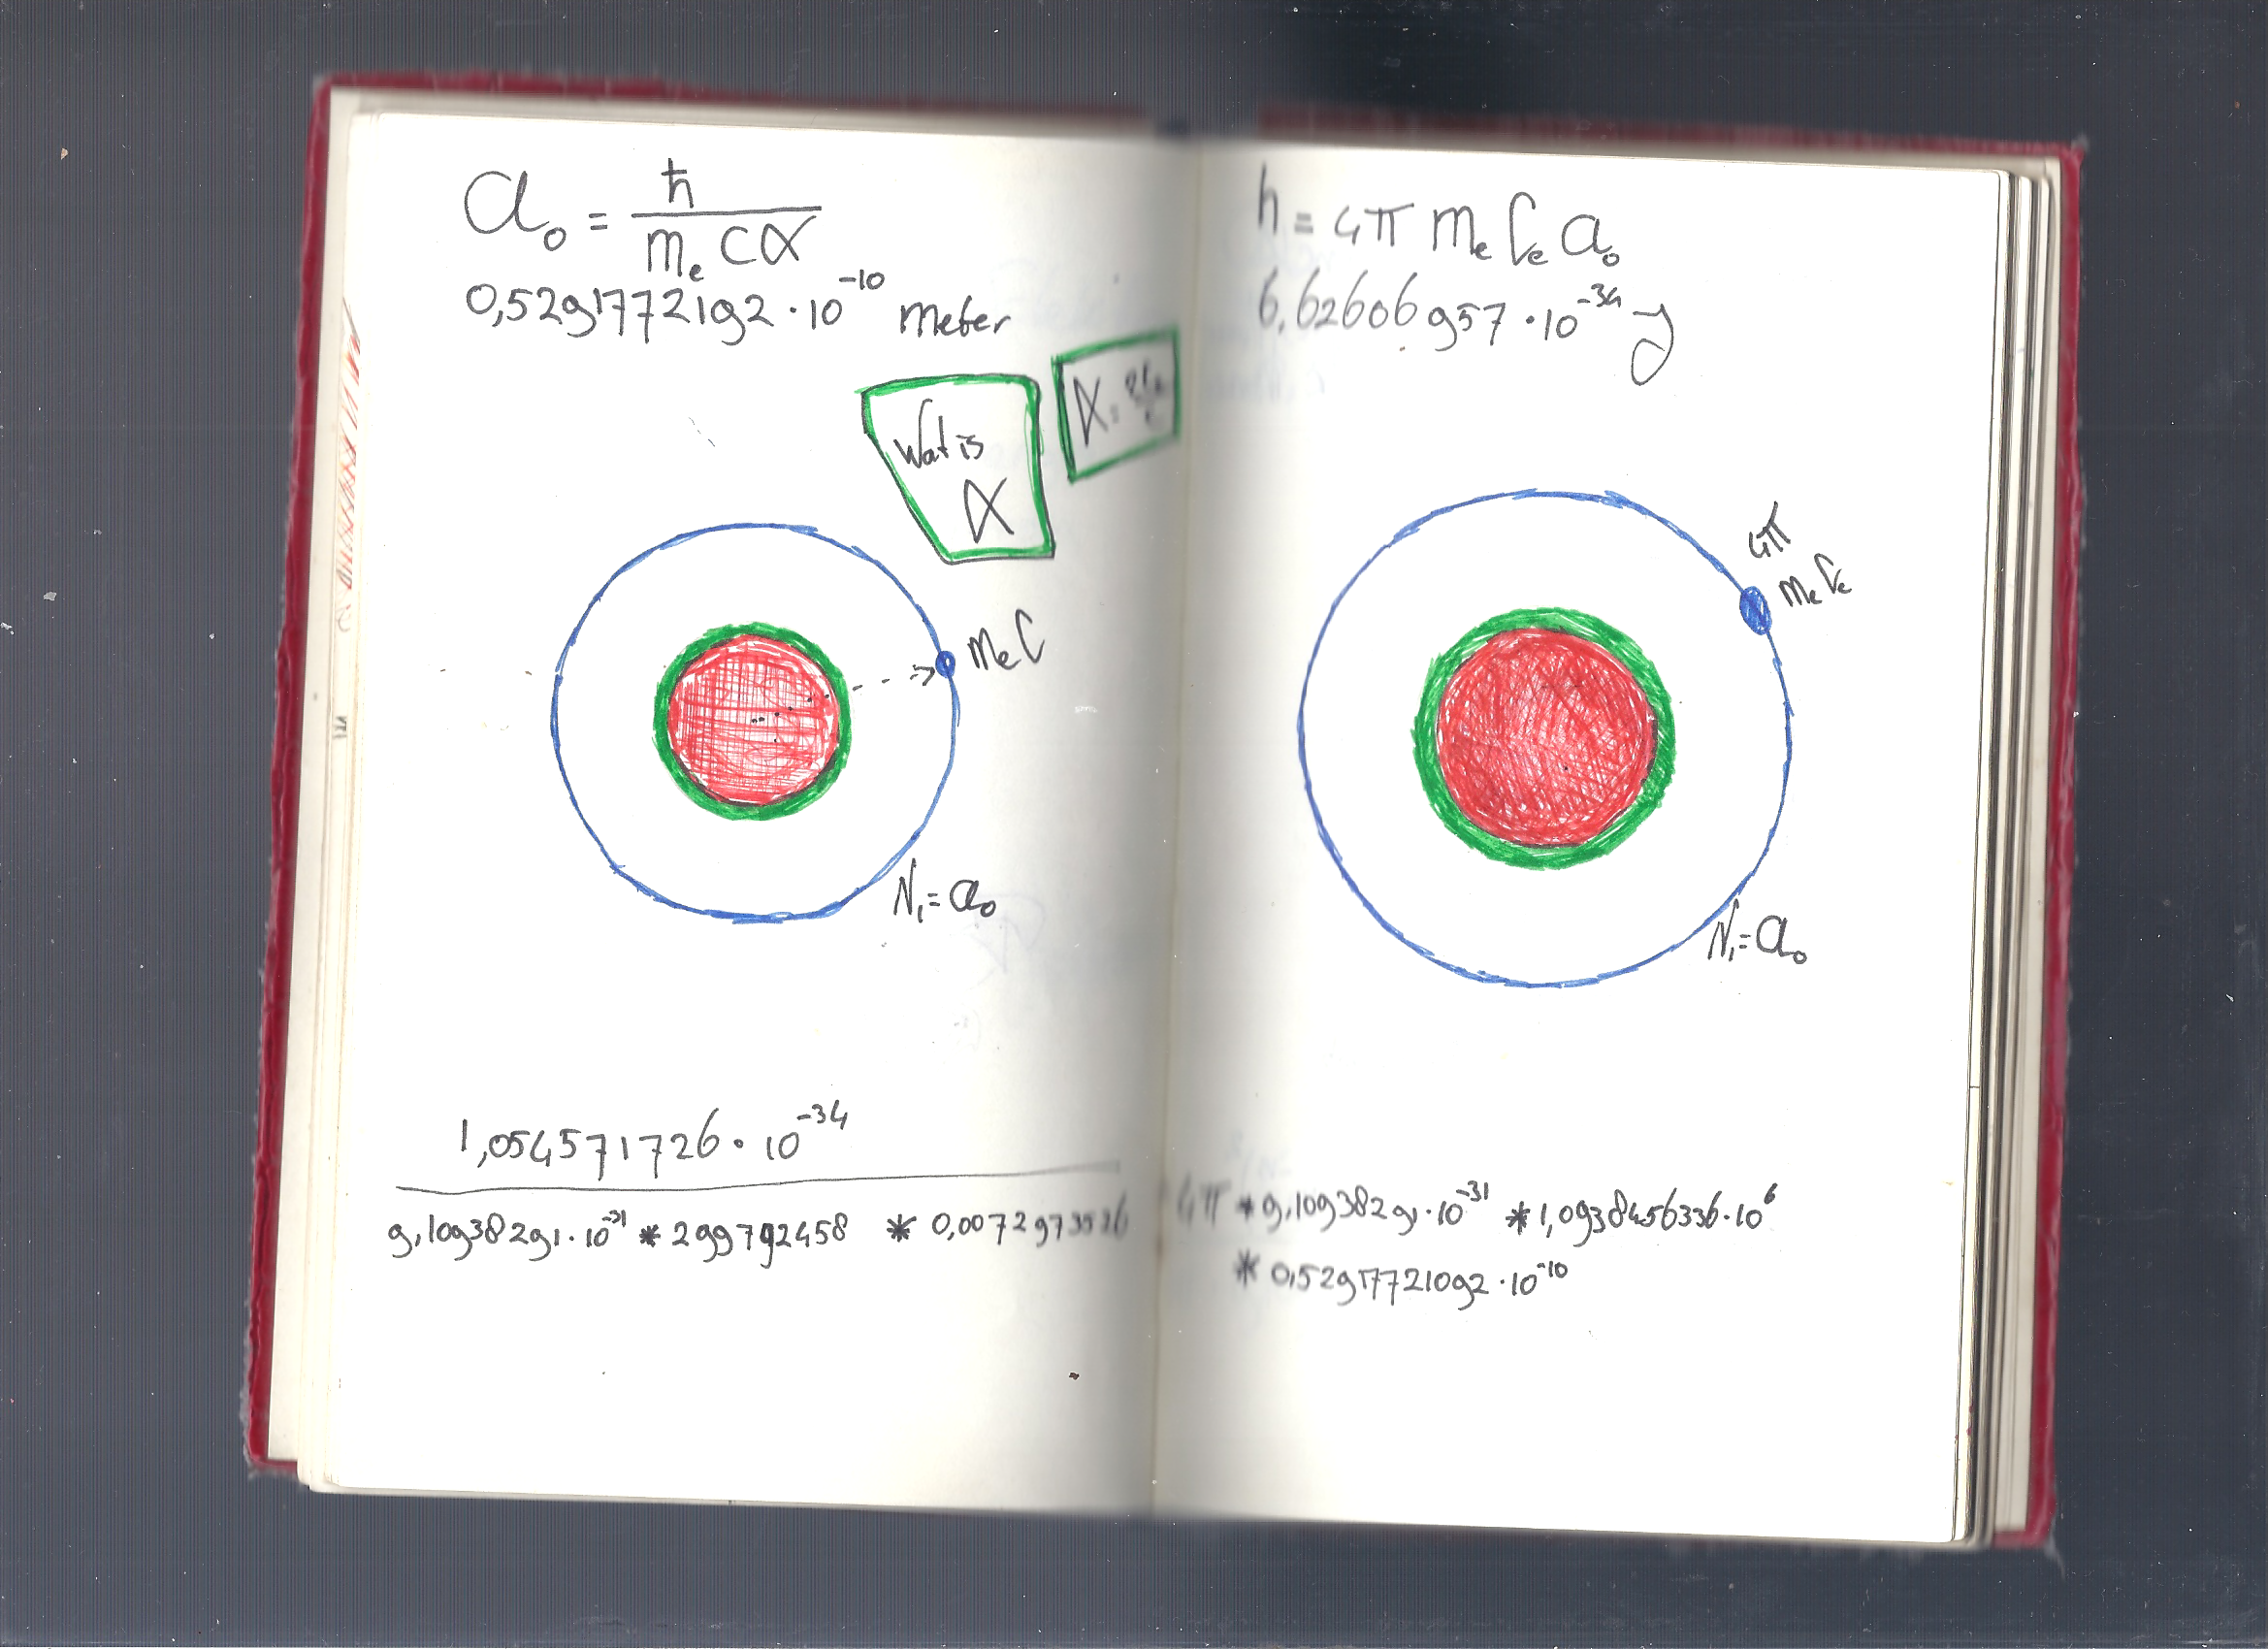 a₀ = ħ / mₑ c α
0,5291772192 · 10⁻¹⁰ meter
Wat is
α
mₑ C
N₁ = a₀
1,054571726 · 10⁻³⁴
9,10938291 · 10⁻³¹ * 299792458 * 0,0072973526
h = 4π mₑ Cₑ a₀
6,62606957 · 10⁻³⁴ J
4π
mₑ Cₑ
N₁ = a₀
4π * 9,10938291 · 10⁻³¹ * 1,0938456336 · 10⁶
* 0,52917721092 · 10⁻¹⁰